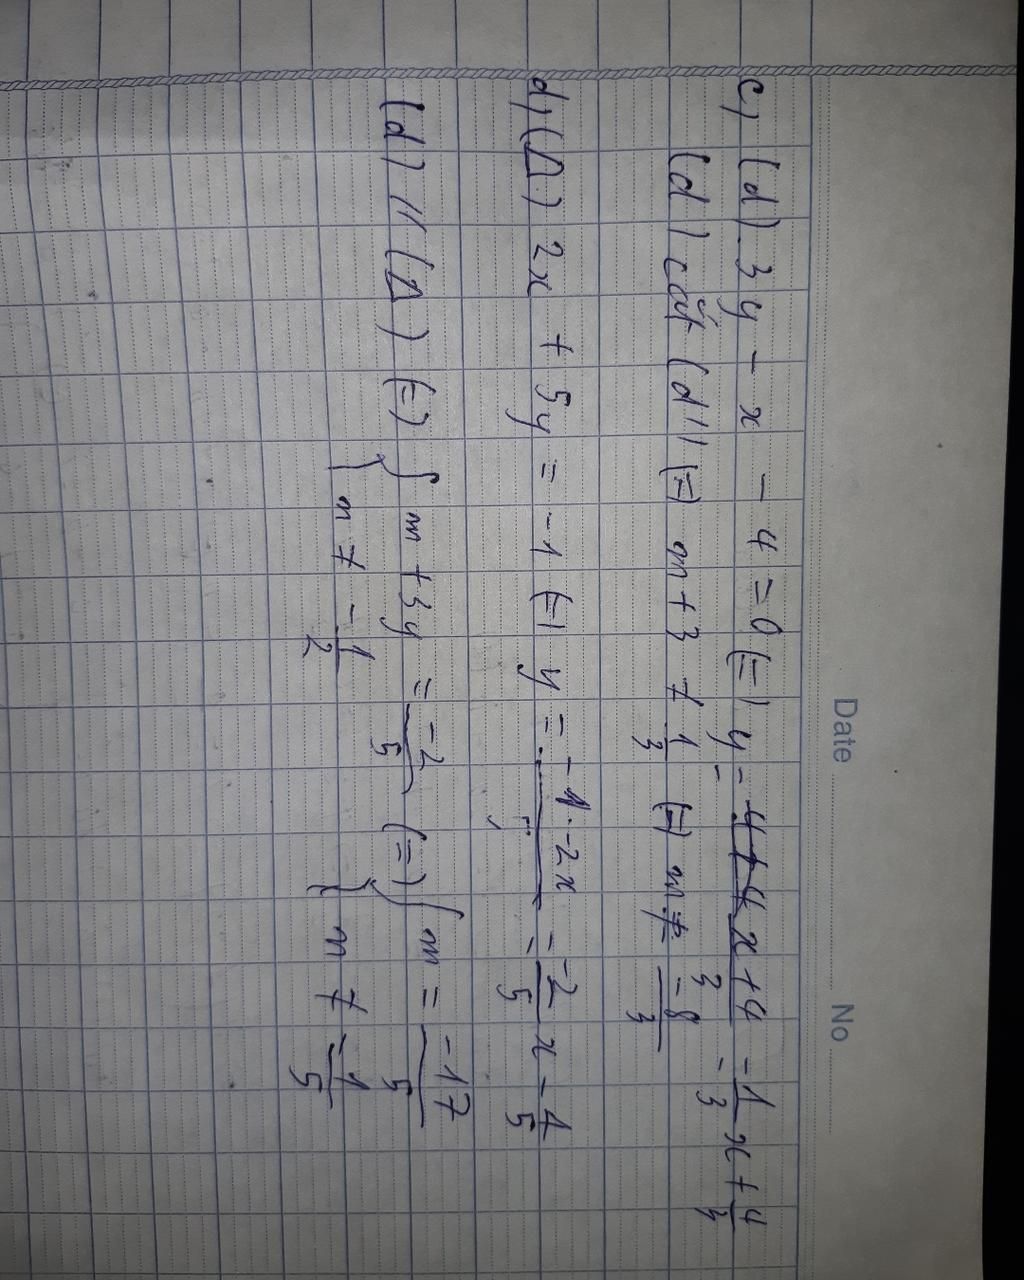 Date No
c, (d) 3y - x - 4 = 0 (=) y = x+4/3 = 1/3 x + 4/3
(d) cắt (d') (=) m+3 ≠ 1/3 (=) m ≠ -8/3
d, (Δ) 2x + 5y = -1 (=) y = -1-2x/5 = -2/5 x - 1/5
(d) // (Δ) (=) { m + 3y = -2/5 (=) { m = -17/5
m ≠ -1/2 m ≠ -1/5